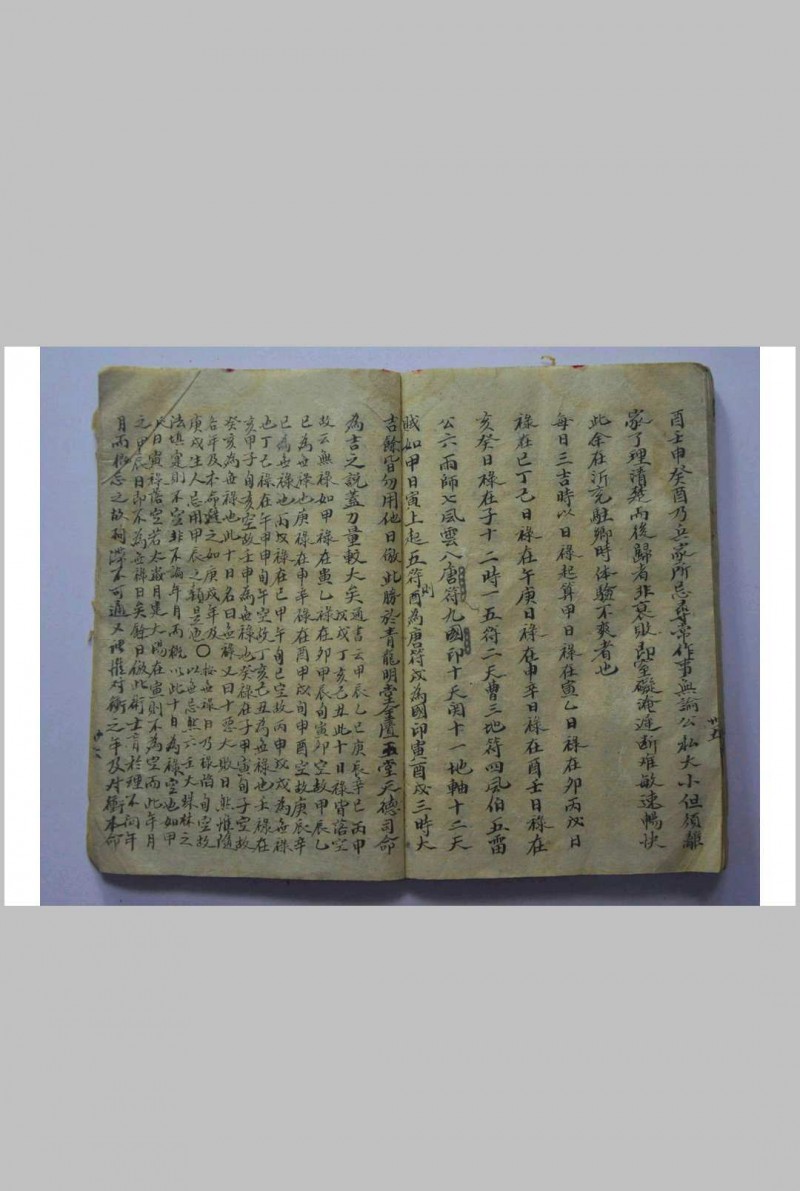 酉壬申癸酉乃兵家所忌尋常作事無論公私大小但須離
家了理清楚而後歸者非衰敗即窒礙淹遲斷难敏速暢快
此余在沂充駐鄉時体驗不爽者也
每日三吉時以日祿起算甲日祿在寅乙日祿在卯丙戊日
祿在巳丁己日祿在午庚日祿在申辛日祿在酉壬日祿在
亥癸日祿在子十二時一五符二天曹三地符四風伯五雷
公六雨師七風雲八唐符九國印十天関十一地軸十二天
賊如甲日寅上起五符則酉為唐符戌為國印寅酉戌三時大
吉餘皆勿用他日倣此勝於青龍明堂金匱玉堂天德司命
為吉之說蓋力量較大矣
通書云甲辰乙巳庚辰辛巳丙申
戊戌丁亥己丑此十日祿皆落空
故云無祿如甲祿在寅乙祿在卯甲辰旬寅卯空故甲辰乙
巳為無祿也庚祿在申辛祿在酉甲戌旬申酉空故庚辰辛
巳為無祿也丙戊祿在巳甲午旬巳空故丙申戊戌為無祿
也丁己祿在午甲申旬午空故丁亥己丑為無祿也壬祿在
亥甲子旬亥空故壬申為無祿也癸祿在子甲寅旬子空故
癸亥為無祿也此十日名曰無祿又曰十惡大敗日然惟隨
各年及本命観之如庚戌年及
庚戌生人忌用甲辰之類是也〇按無祿日乃祿詣旬空故
以無忌然六壬大
法填寔則不空非不論年月而概以此十日為祿空也如甲
辰日寅祿落空若太歲月建太陽在寅則不為空而此年月
之甲辰日即不為無祿日矣餘日倣此術士盲於理不問年
月而概忌之故拘滞不可通又謂惟对衝之年及对衝本命
卅五
卅六